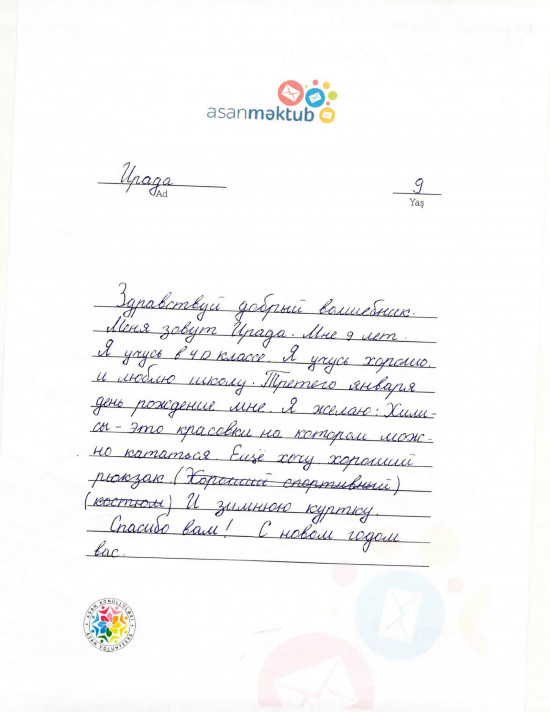 asanməktub
Ирада
9
Ad
Yaş
Здравствуй добрый волшебник.
Меня зовут Ирада. Мне 9 лет.
Я учусь в 4 D классе. Я учусь хорошо.
и люблю школу. Третего января
день рождение мне. Я желаю: Хили-
сы - это красовки на котором мож-
но кататься. Ещё хочу хороший
рюкзак (Хороший спортивный)
(костюм) И зимнюю куртку.
Спасибо вам! С новом годом
вас.
ASAN KÖNÜLLÜLƏRİ